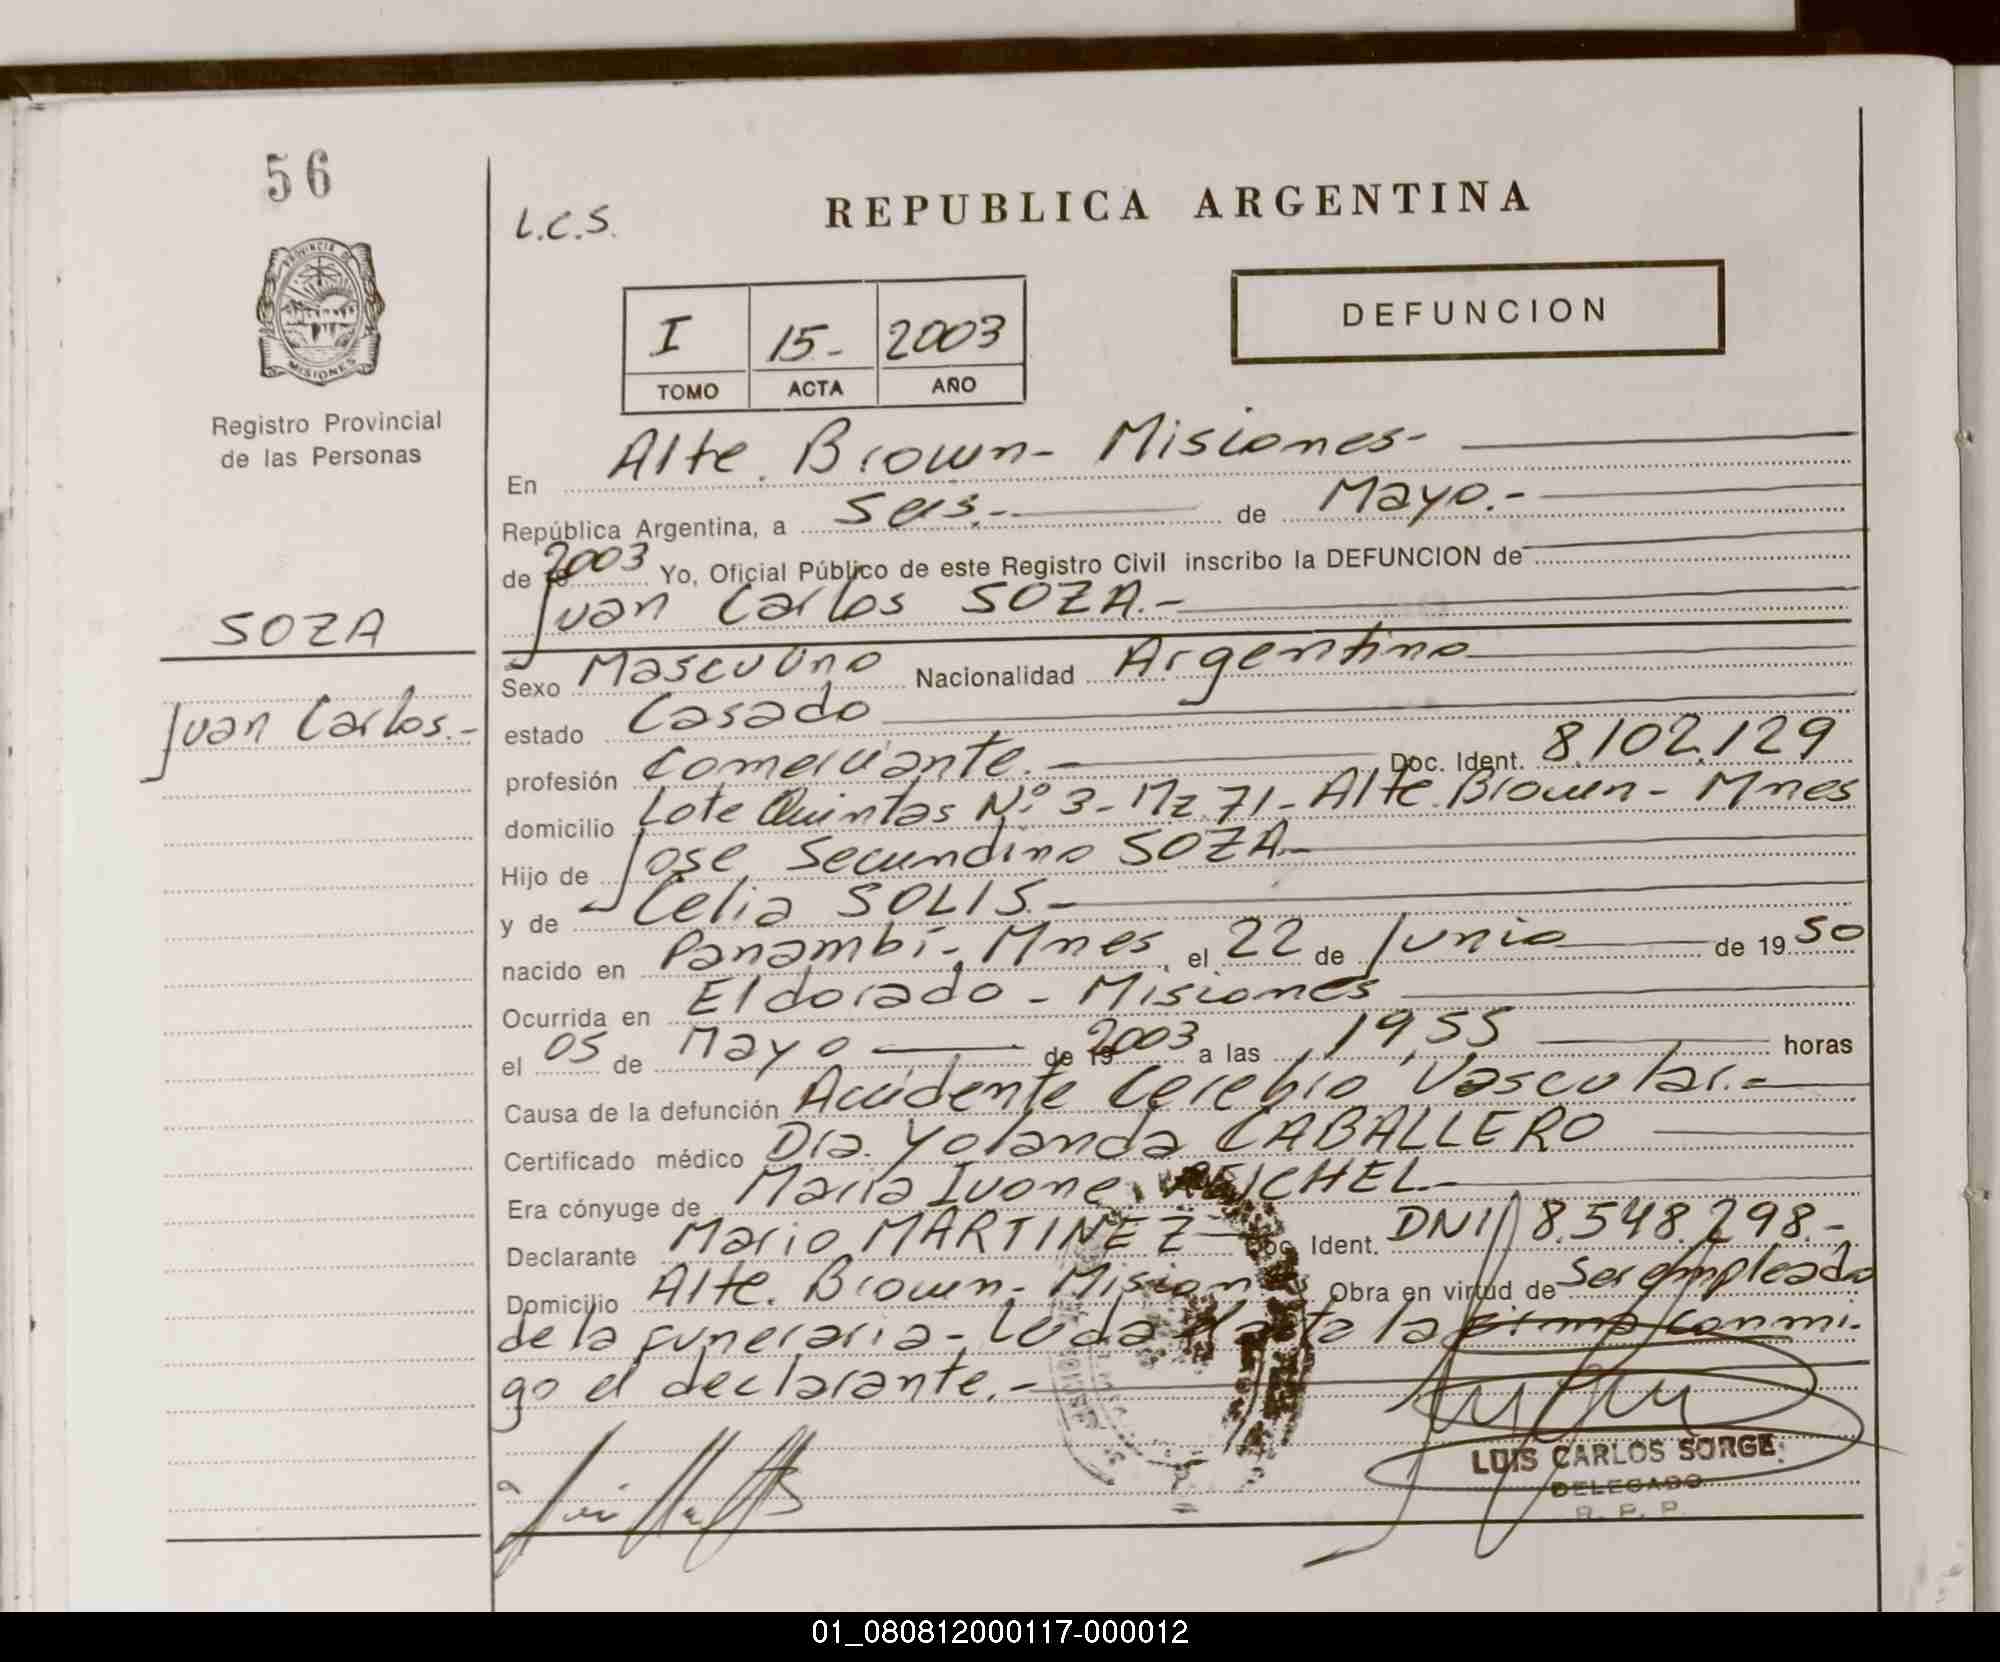 56
PROVINCIA DE
MISIONES
Registro Provincial
de las Personas
SOZA
Juan Carlos.-
L.C.S.
REPUBLICA ARGENTINA
I 15- 2003
TOMO ACTA AÑO
DEFUNCION
En Alte. Brown- Misiones-
República Argentina, a seis.- de Mayo.-
de 2003 Yo, Oficial Público de este Registro Civil inscribo la DEFUNCION de
Juan Carlos SOZA.-
Sexo Masculino Nacionalidad Argentino
estado Casado
profesión Comerciante.- Doc. Ident. 8.102.129
domicilio Lote Quintas N:º 3- Mz. 71- Alte. Brown- Mnes
Hijo de Jose Secundino SOZA-
y de Celia SOLIS.-
nacido en Panambí-, Mnes, el 22 de Junio de 1950
Ocurrida en Eldorado - Misiones
el 05 de Mayo de 19 2003 a las 19,55 horas
Causa de la defunción Accidente Cerebro Vascular.-
Certificado médico Dra. Yolanda CABALLERO
Era cónyuge de Maria Ivone REICHEL-
Declarante Mario MARTINEZ- Doc. Ident. DNI 8.548.298.-
Domicilio Alte. Brown- Misiones Obra en virtud de Ser empleado
de la funeraria- Leida el acta la firma conmi-
go el declarante.-
LUIS CARLOS SORGE
DELEGADO
R. P. P.
01_080812000117-000012